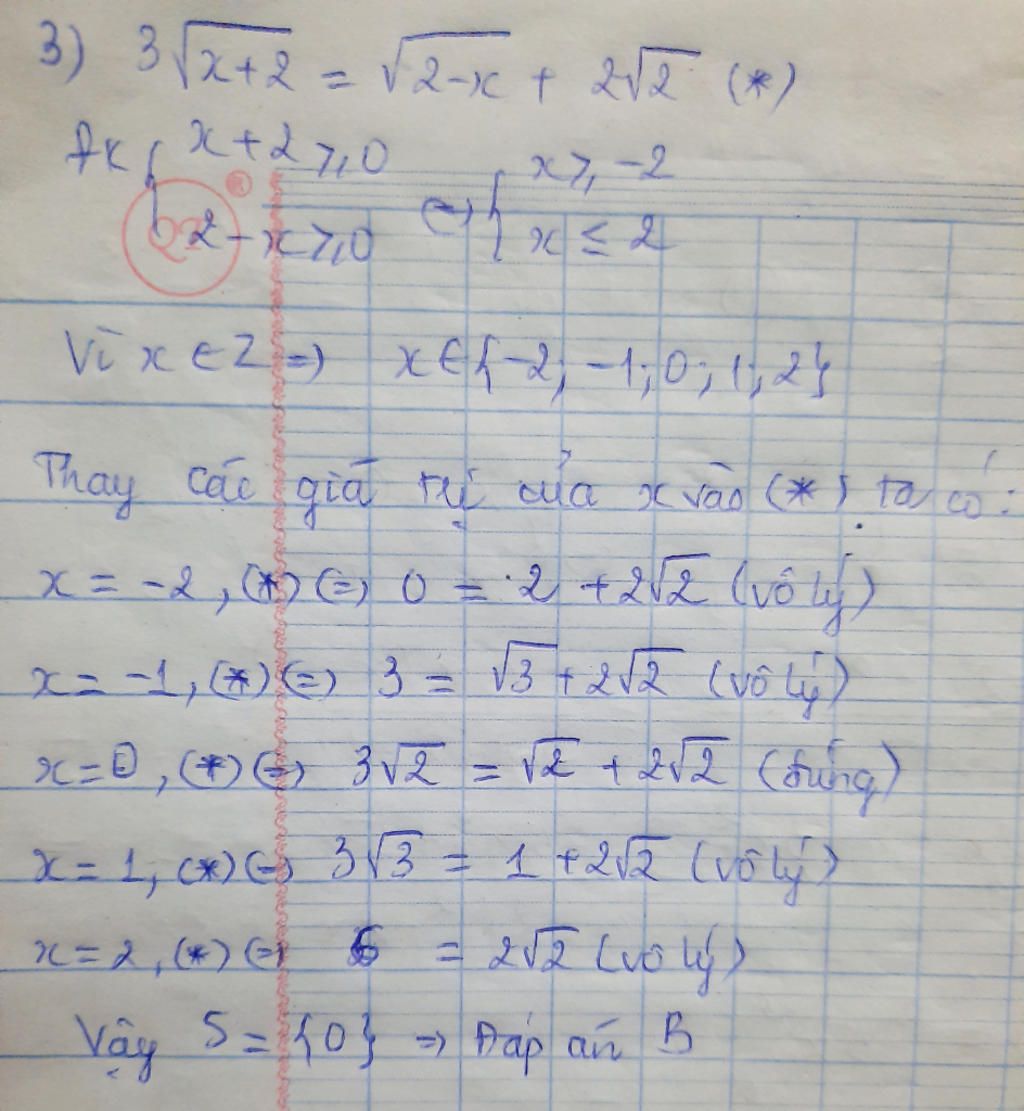 3) 3√(x+2) = √(2-x) + 2√2 (*)
ĐK { x+2 ≥ 0 ⇔ { x ≥ -2
2-x ≥ 0 x ≤ 2
Vì x ∈ Z ⇒ x ∈ {-2; -1; 0; 1; 2}
Thay các giá trị của x vào (*) ta có:
x = -2, (*) ⇔ 0 = 2 + 2√2 (vô lý)
x = -1, (*) ⇔ 3 = √3 + 2√2 (vô lý)
x = 0, (*) ⇔ 3√2 = √2 + 2√2 (đúng)
x = 1, (*) ⇔ 3√3 = 1 + 2√2 (vô lý)
x = 2, (*) ⇔ 6 = 2√2 (vô lý)
Vậy S = {0} ⇒ Đáp án B